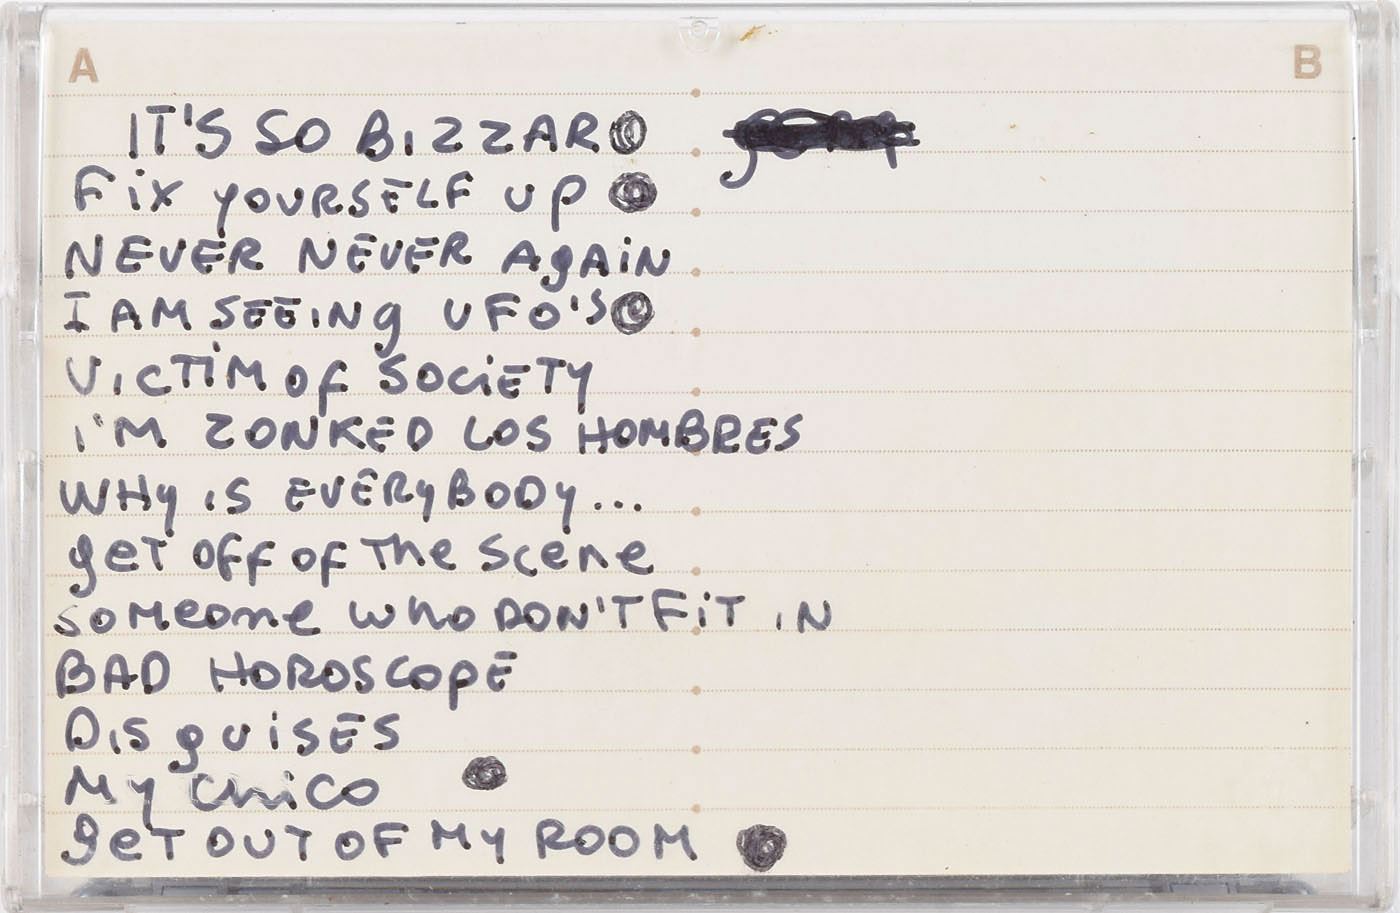 A B
IT'S SO BIZZAR
FiX YOURSELF UP
NEVER NEVER AgAiN
I AM SEEING UFO'S
VICTiM OF SOCiETY
I'M ZONKED LOS HOMBRES
WHY IS EVERYBODY...
geT OFF OF The Scene
someone who DON'T FiT IN
BAD HOROSCOPE
DISgUiSES
MY CHiCO
geT OUT OF MY ROOM